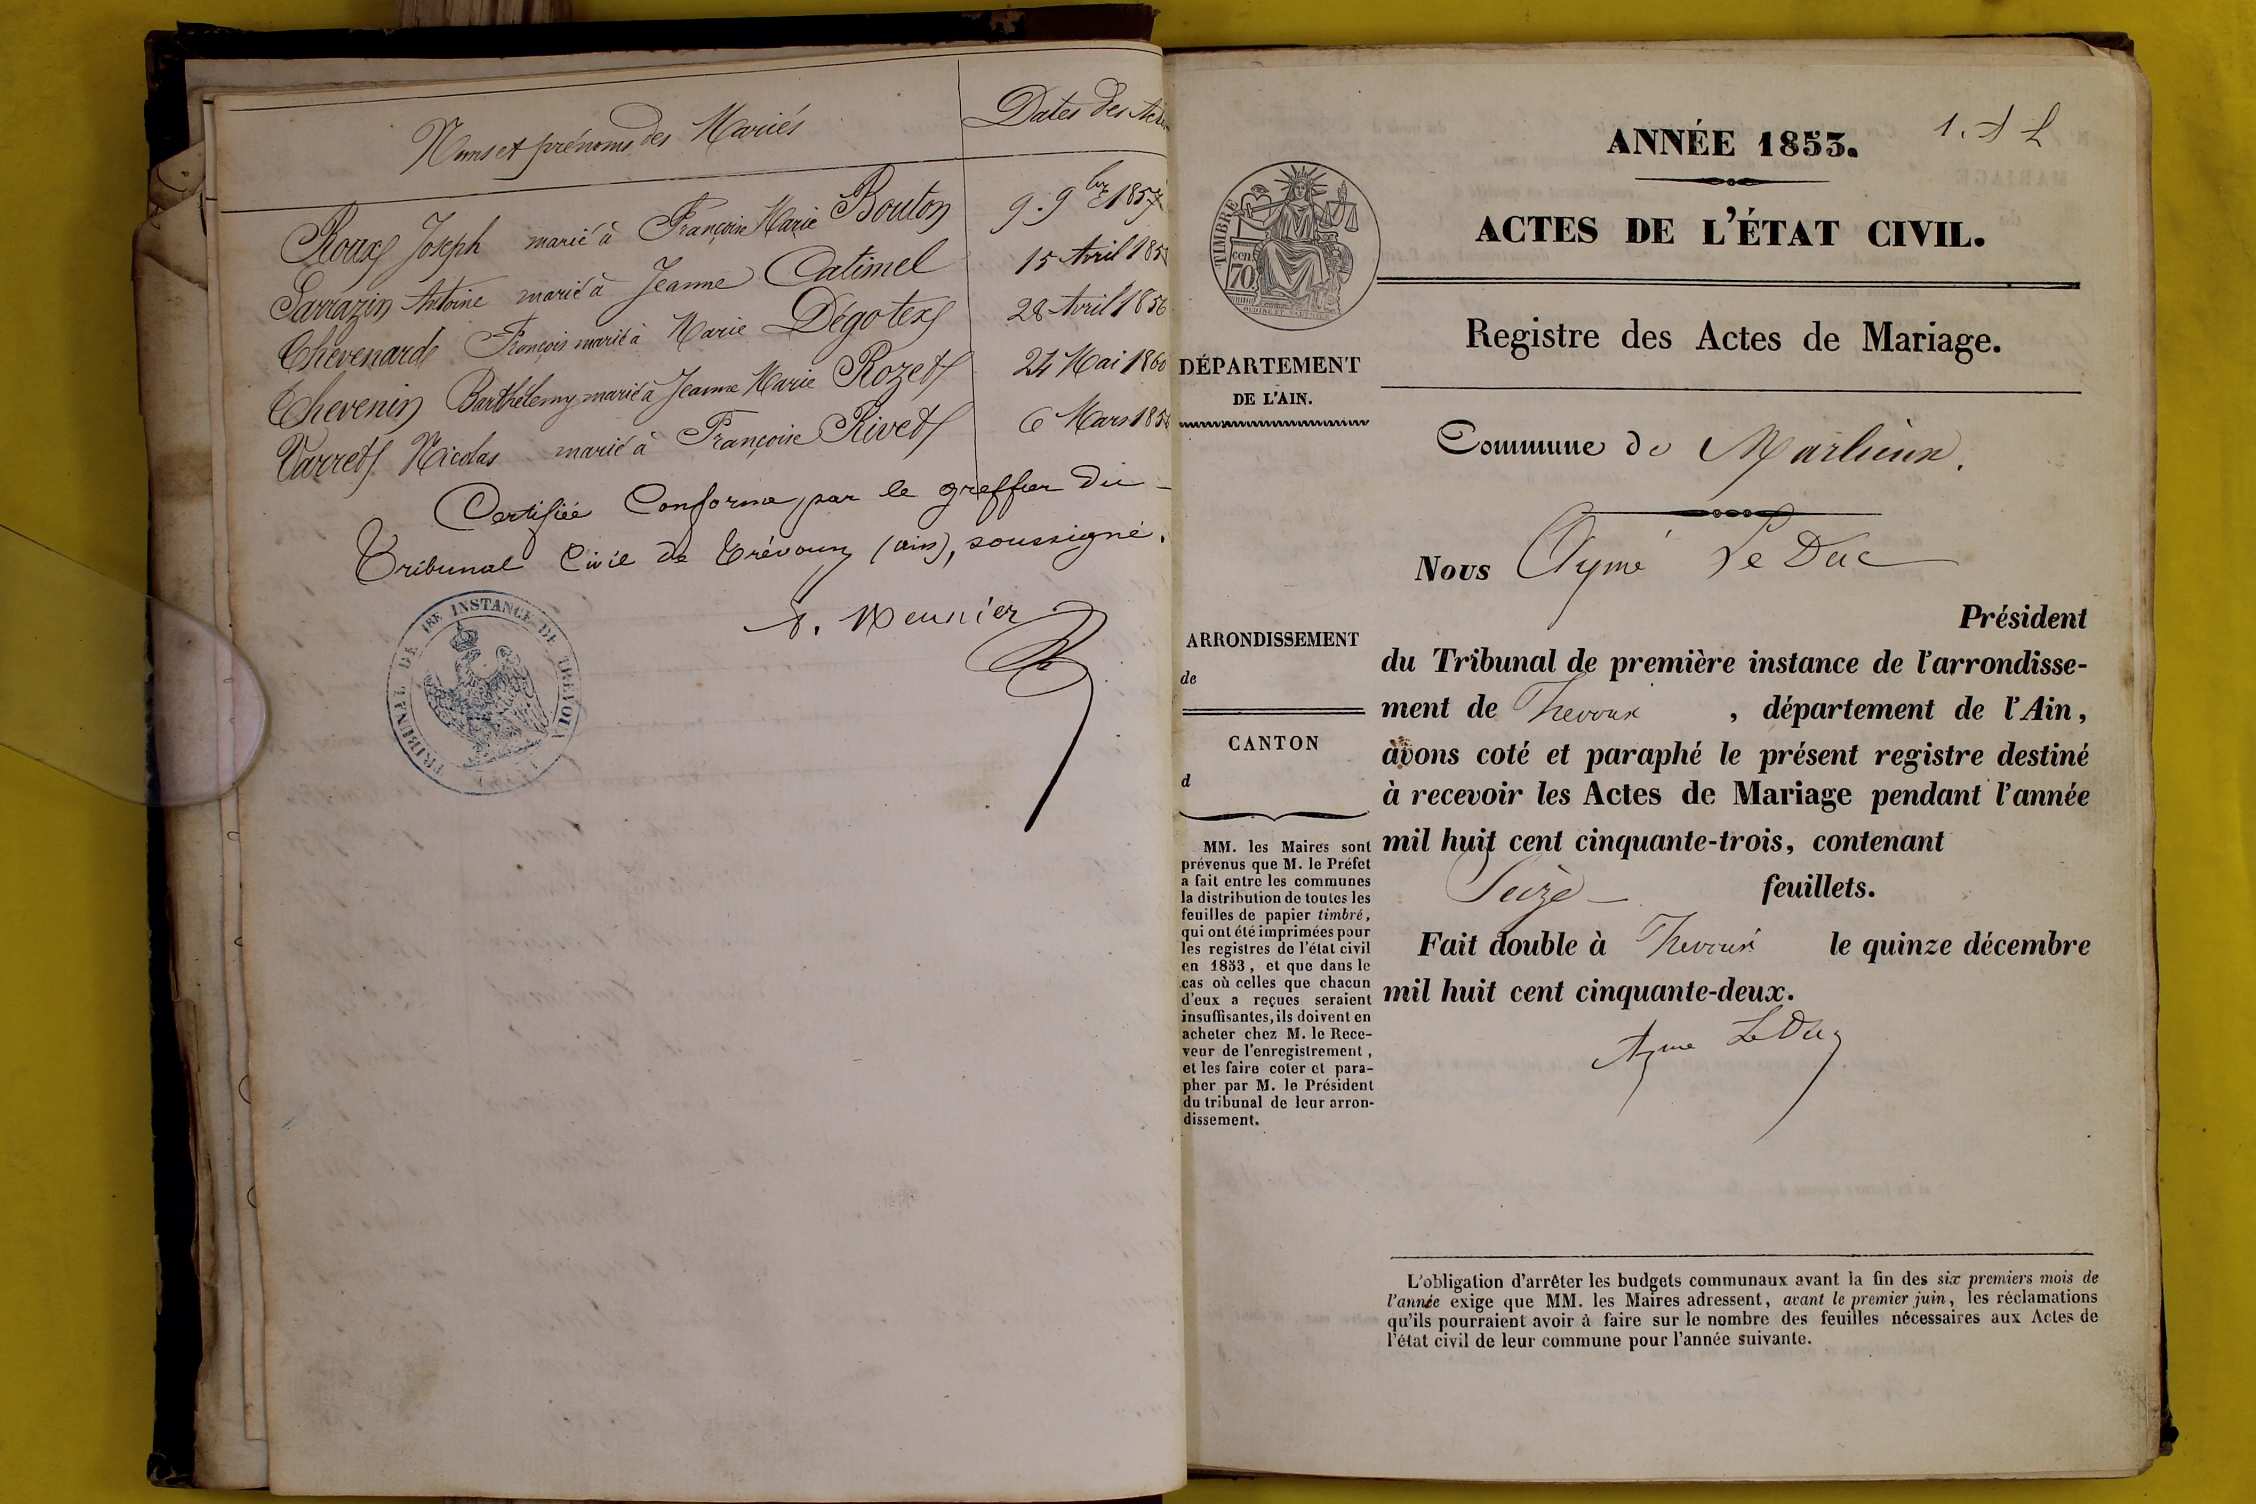 Noms et prénoms des Mariés
Dates des Actes
Roux Joseph marié à Françoise Marie Bouton 9. 9bre 1857
Sarrazin Antoine marié à Jeanne Catimel 15 Avril 185
Chevenard François marié à Marie Dégotex 28 Avril 1856
Thevenin Barthélemy marié à Jeanne Marie Rozet 24 Mai 1860
Varret Nicolas marié à Françoise Rivet 6 Mars 185
Certifiée Conforme, par le greffier du
Tribunal Civil de Trévoux (ain), soussigné.
Meunier
TRIBUNAL DE 1RE INSTANCE DE TRÉVOUX
1.
ANNÉE 1853.
ACTES DE L'ÉTAT CIVIL.
TIMBRE
70 cen.
Registre des Actes de Mariage.
DÉPARTEMENT
DE L'AIN.
Commune de Marlieux.
Nous Aymé Le Duc
Président
ARRONDISSEMENT
de
CANTON
d
du Tribunal de première instance de l'arrondisse-
ment de Trevoux , département de l'Ain,
avons coté et paraphé le présent registre destiné
à recevoir les Actes de Mariage pendant l'année
mil huit cent cinquante-trois, contenant
Seize feuillets.
Fait double à Trevoux le quinze décembre
mil huit cent cinquante-deux.
Ayme LeDuc
MM. les Maires sont
prévenus que M. le Préfet
a fait entre les communes
la distribution de toutes les
feuilles de papier timbré,
qui ont été imprimées pour
les registres de l'état civil
en 1853, et que dans le
cas où celles que chacun
d'eux a reçues seraient
insuffisantes, ils doivent en
acheter chez M. le Rece-
veur de l'enregistrement,
et les faire coter et para-
pher par M. le Président
du tribunal de leur arron-
dissement.
L'obligation d'arrêter les budgets communaux avant la fin des six premiers mois de
l'année exige que MM. les Maires adressent, avant le premier juin, les réclamations
qu'ils pourraient avoir à faire sur le nombre des feuilles nécessaires aux Actes de
l'état civil de leur commune pour l'année suivante.